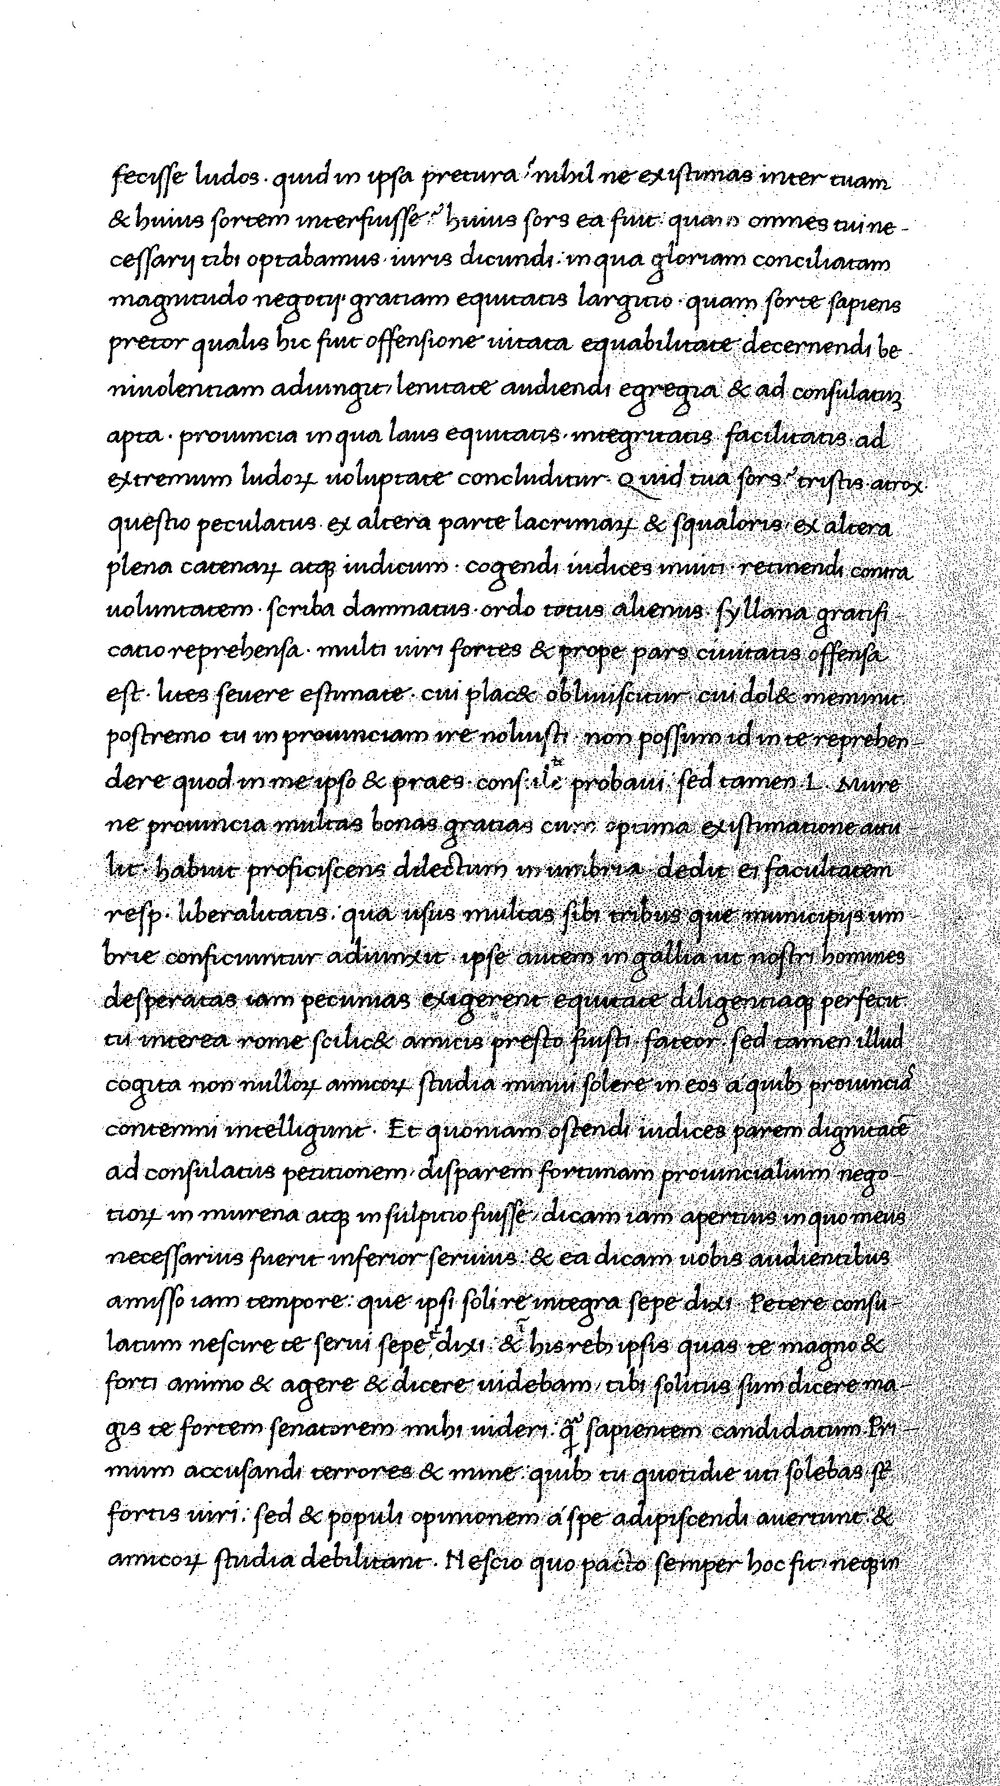 fecisse ludos. quid in ipsa pretura? nihil ne existimas inter tuam
& huius sortem interfuisse? huius sors ea fuit. quam omnes tui ne-
cessarij tibi optabamus. iuris dicundi: in qua gloriam conciliatam
magnitudo negotij. gratiam equitatis largitio. quam sorte sapiens
pretor qualis hic fuit offensione uitata equabilitate decernendi be
niuolentiam adiungit, lenitate audiendi egregia & ad consulatuꝫ
apta. prouincia in qua laus equitatis. integritatis facilitatis. ad
extremum ludoꝝ uoluptate concluditur. Quid tua sors? tristis. atrox.
questio peculatus. ex altera parte lacrimaꝝ & squaloris. ex altera
plena catenaꝝ atqꝫ iudicum. cogendi iudices inuiti. retinendi contra
uoluntatem. scriba damnatus. ordo totus alienus. syllana gratifi
catio reprehensa. multi uiri fortes & prope pars ciuitatis offensa
est. lites seuere estimate. cui plac& obliuiscitur. cui dol& meminit.
postremo tu in prouinciam ire noluisti. non possum id in te reprehen-
dere quod in me ipso & praes. consule probaui. sed tamen L. Mure
ne prouincia multas bonas gratias cum optima existimatione attu-
lit. habuit proficiscens dilectum in umbria. dedit ei facultatem
resp. liberalitatis. qua usus multas sibi tribus que municipijs um-
brie conficiuntur adiunxit. ipse autem in gallia ut nostri homines
desperatas iam pecunias exigerent equitate diligentiaqꝫ perfecit
tu interea rome scilic& amicis presto fuisti. fateor. sed tamen illud
cogita non nulloꝝ amicoꝝ studia minui solere in eos a quibꝫ prouinciā
contemni intelligunt. Et quoniam ostendi iudices parem dignitatē
ad consulatus petitionem. disparem fortunam prouincialium nego-
tioꝝ in murena atqꝫ in sulpitio fuisse, dicam iam apertius in quo meus
necessarius fuerit inferior seruius. & ea dicam uobis audientibus
amisso iam tempore: que ipsi soli re integra sepe dixi. Petere consu-
latum nescire te serui sepe t̄ dixi. & ī his rebꝫ ipsis quas te magno &
forti animo & agere & dicere uidebam, tibi solitus sum dicere ma-
gis te fortem senatorem mihi uideri. ꝙ̄ sapientem candidatum. Pri-
mum accusandi terrores & mine. quibꝫ tu quotidie uti solebas st̄
fortis uiri. sed & populi opinionem a spe adipiscendi auertunt &
amicoꝝ studia debilitant. Nescio quo pacto semper hoc fit. neqꝫ in